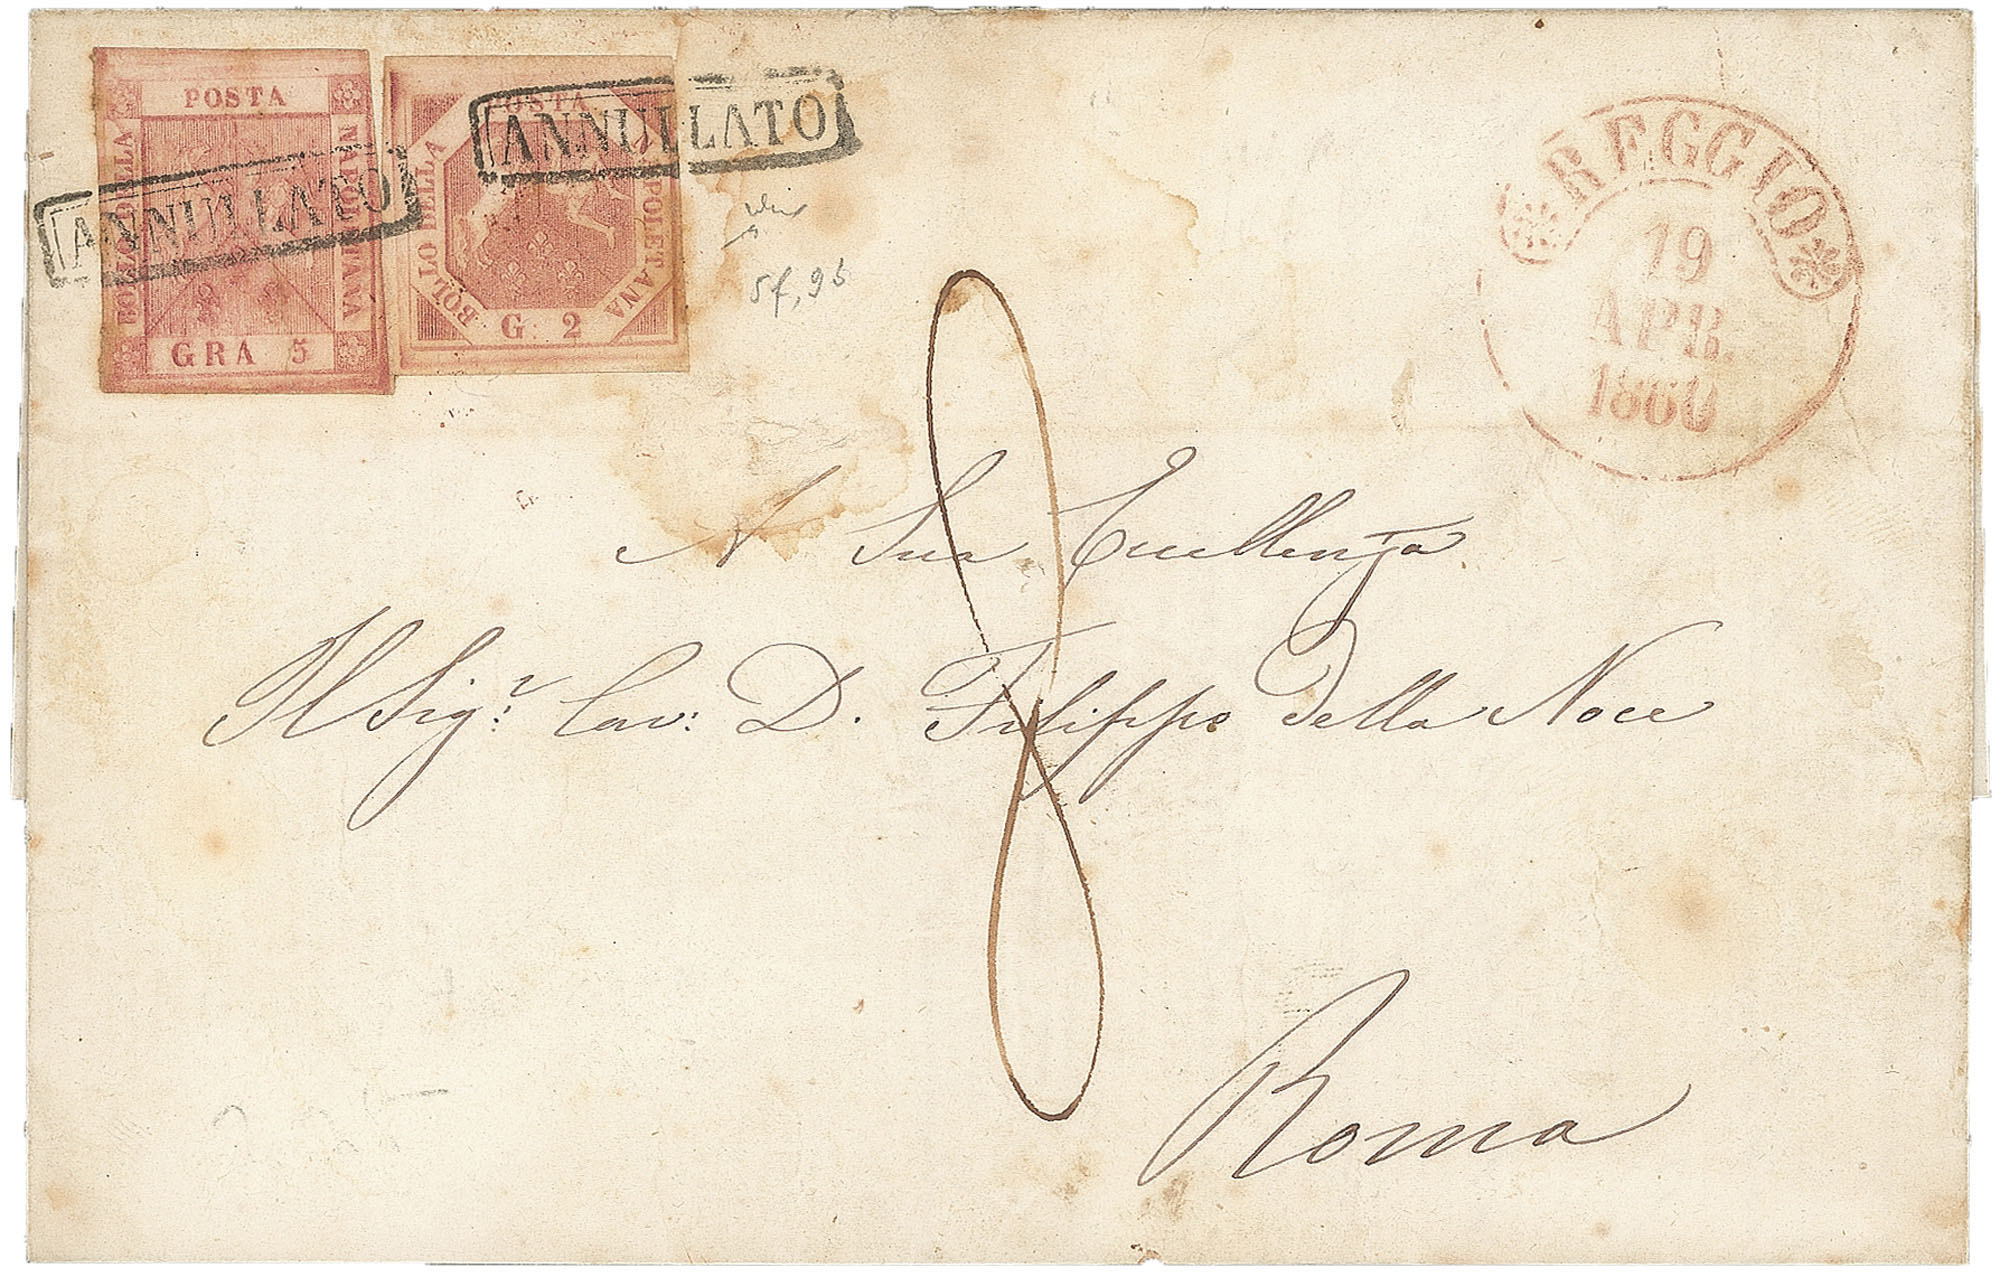 POSTA
BOLLO DELLA
NAPOLETANA
GRA 5
ANNULLATO
POSTA
BOLLO DELLA
NAPOLETANA
G. 2
ANNULLATO
REGGIO
19
APR.
1860
5f, 9b
8
A Sua Eccellenza
Il Sig.r Cav: D. Filippo Della Noce
Roma